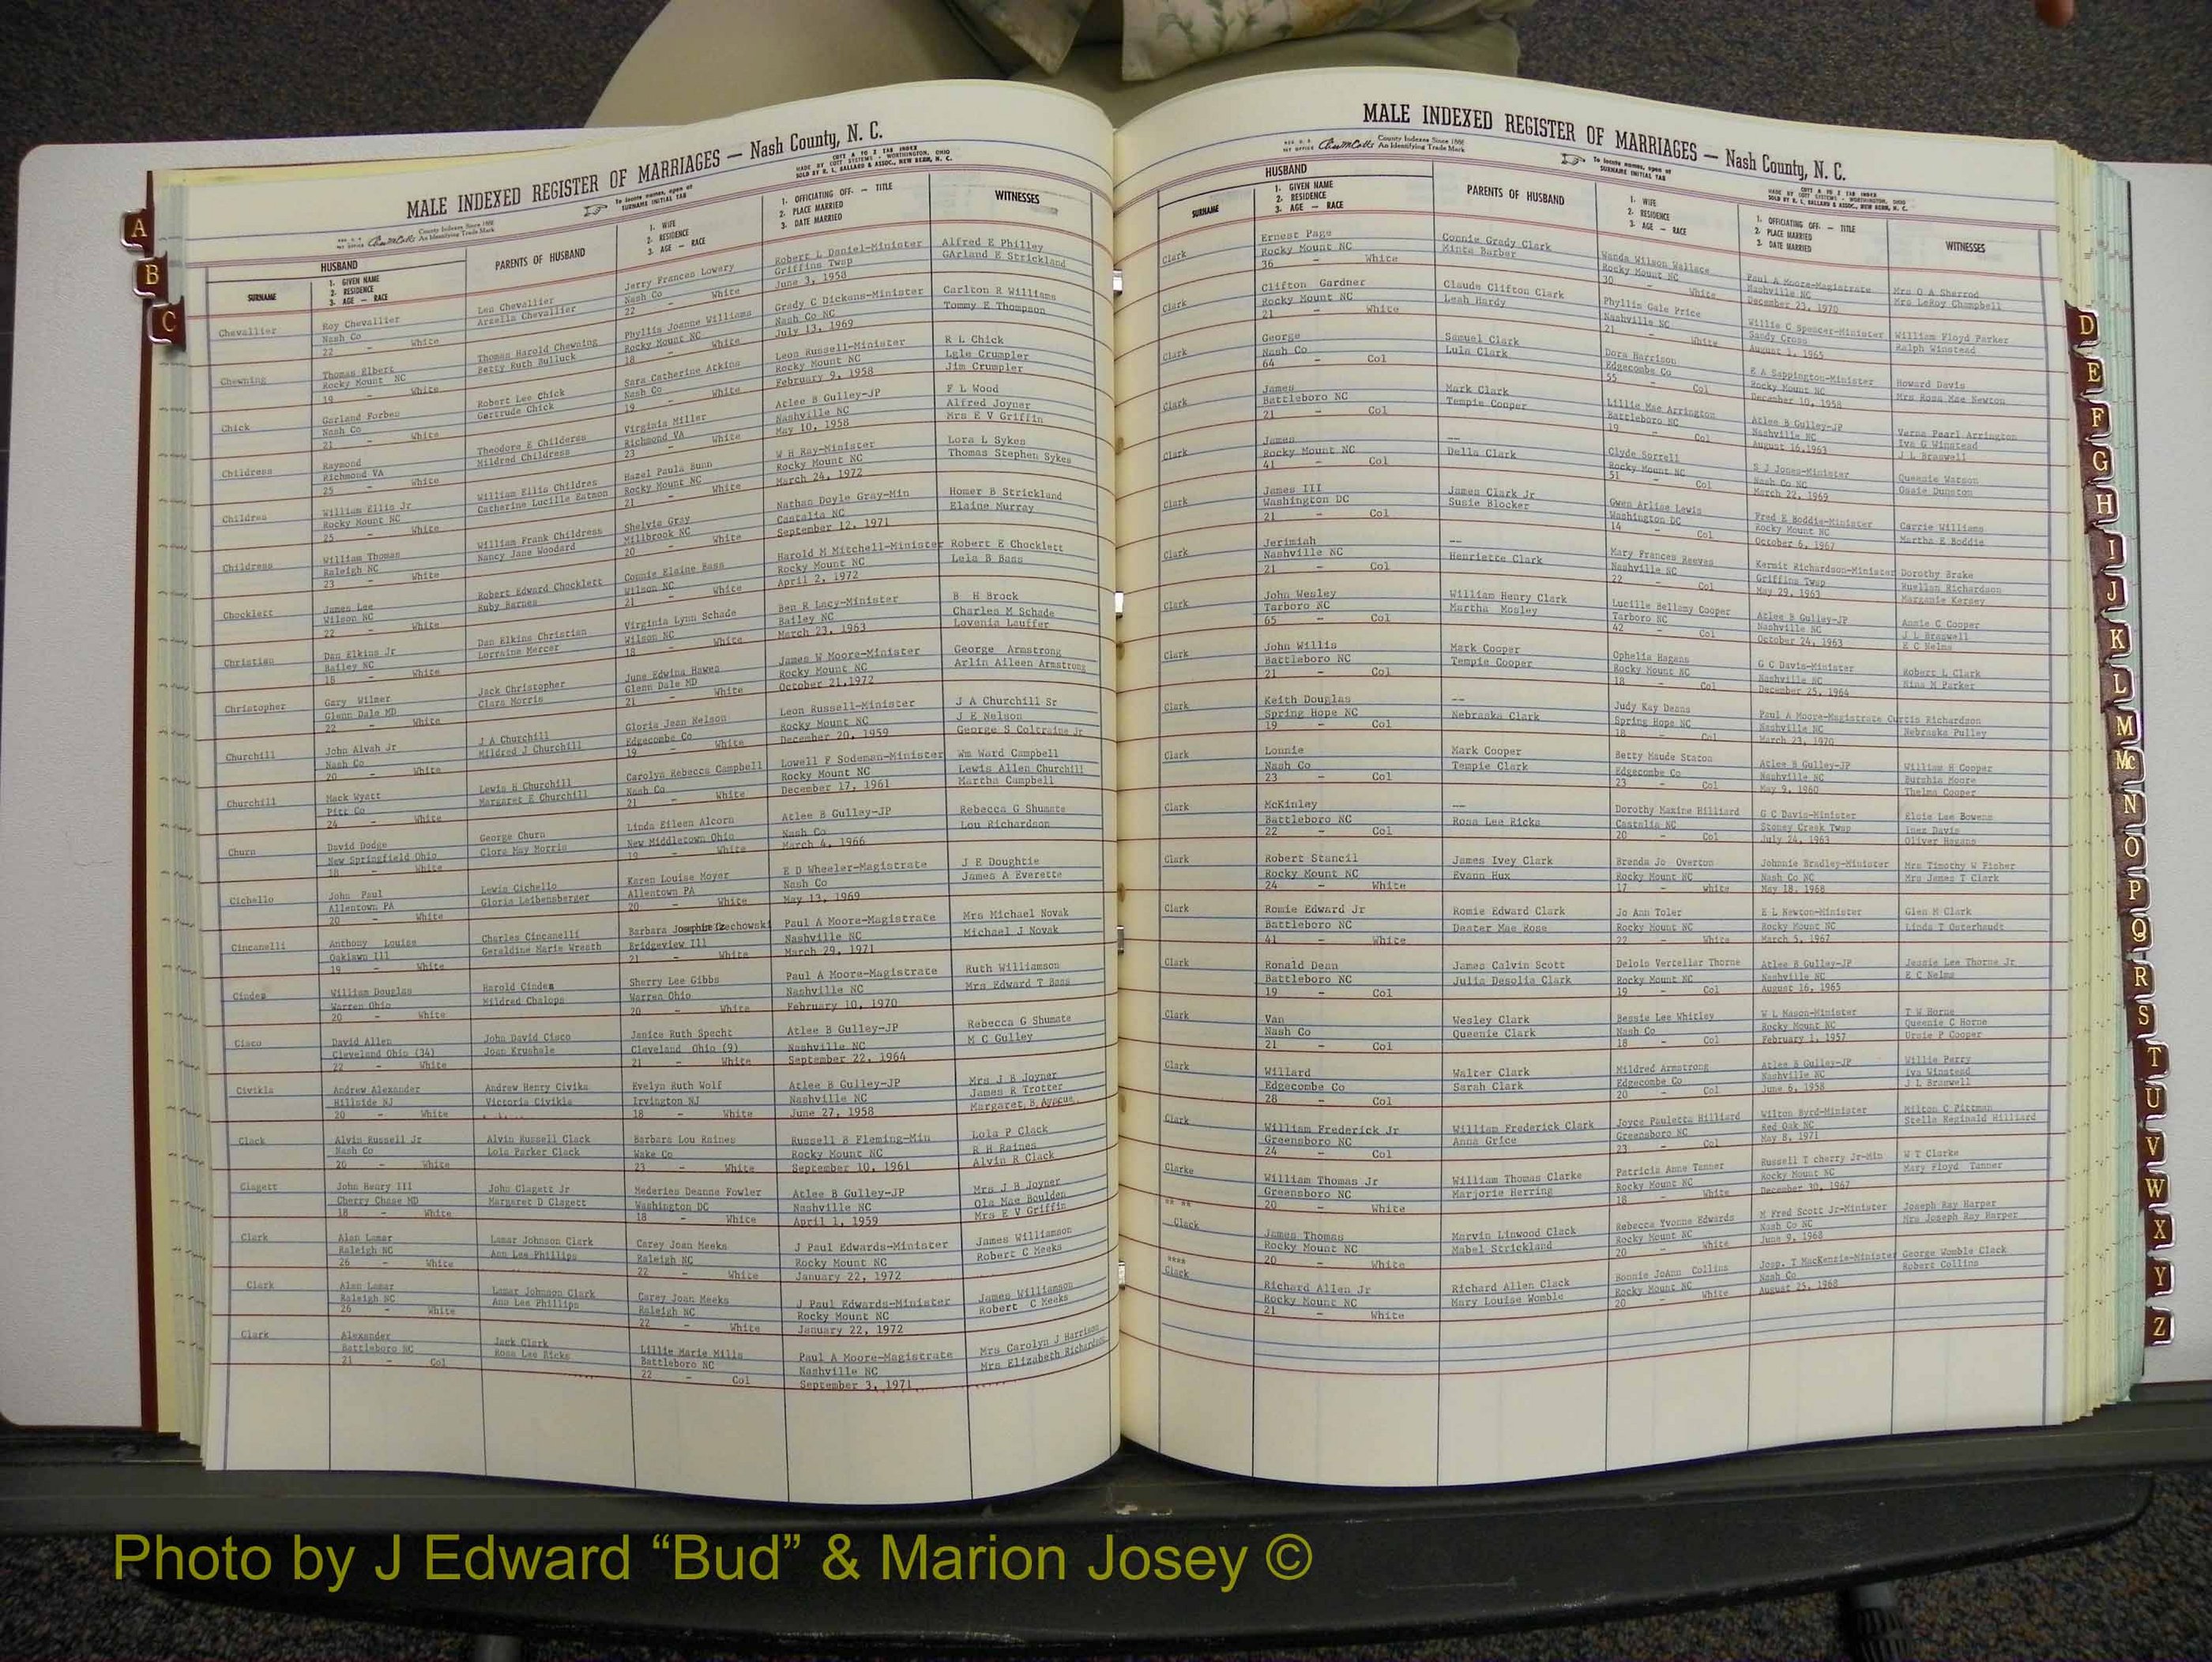 MALE INDEXED REGISTER OF MARRIAGES — Nash County, N. C.
County Indexes Since 1888
An Identifying Trade Mark
To locate names, open at
SURNAME INITIAL TAB
COTT A TO Z TAB INDEX
MADE BY COTT SYSTEMS - WORTHINGTON, OHIO
SOLD BY R. L. BALLARD & ASSOC., NEW BERN, N. C.
HUSBAND
SURNAME
1. GIVEN NAME
2. RESIDENCE
3. AGE — RACE
PARENTS OF HUSBAND
1. WIFE
2. RESIDENCE
3. AGE — RACE
1. OFFICIATING OFF. — TITLE
2. PLACE MARRIED
3. DATE MARRIED
WITNESSES
Chevallier Roy Chevallier Lea Chevallier Jerry Frances Lowary Robert L Daniel-Minister Alfred E Philley
Nash Co Arzella Chevallier Nash Co Griffins Twsp GArland E Strickland
22 - White 22 - White June 3, 1958
Chewning Thomas Elbert Thomas Harold Chewning Phyllis Joanne Williams Grady C Dickens-Minister Carlton R Williams
Rocky Mount NC Betty Ruth Bulluck Rocky Mount NC Nash Co NC Tommy E Thompson
19 - White 18 - White July 13, 1969
Chick Garland Forbes Robert Lee Chick Sara Catherine Atkins Leon Russell-Minister R L Chick
Nash Co Gertrude Chick Nash Co Rocky Mount NC Lgle Crumpler
21 - White 19 - White February 9, 1958 Jim Crumpler
Childress Raymond Theodore E Childress Virginia Miller Atlee B Gulley-JP F L Wood
Richmond VA Mildred Childress Richmond VA Nashville NC Alfred Joyner
25 - White 23 - White May 10, 1958 Mrs E V Griffin
Childres William Ellis Jr William Ellis Childres Hazel Paula Bunn W H Ray-Minister Lora L Sykes
Rocky Mount NC Catherine Lucille Eatmon Rocky Mount NC Rocky Mount NC Thomas Stephen Sykes
25 - White 21 - White March 24, 1972
Childress William Thomas William Frank Childress Shelvie Gray Nathan Doyle Gray-Min Homer B Strickland
Raleigh NC Nancy Jane Woodard Millbrook NC Castalia NC Elaine Murray
23 - White 20 - White September 12, 1971
Chocklett James Lee Robert Edward Chocklett Connie Elaine Bass Harold M Mitchell-Minister Robert E Chocklett
Wilson NC Ruby Barnes Wilson NC Rocky Mount NC Lela B Bass
22 - White 21 - White April 2, 1972
Christian Dan Elkins Jr Dan Elkins Christian Virginia Lynn Schade Ben R Lacy-Minister B H Brock
Bailey NC Lorraine Mercer Wilson NC Bailey NC Charles M Schade
18 - White 18 - White March 23, 1963 Lovenia Lauffer
Christopher Gary Wilner Jack Christopher June Edwina Hawes James W Moore-Minister George Armstrong
Glenn Dale MD Clara Morris Glenn Dale MD Rocky Mount NC Arlin Aileen Armstrong
22 - White 21 - White October 21,1972
Churchill John Alvah Jr J A Churchill Gloria Jean Nelson Leon Russell-Minister J A Churchill Sr
Nash Co Mildred J Churchill Edgecombe Co Rocky Mount NC J E Nelson
20 - White 19 - White December 20, 1959 George S Coltraine Jr
Churchill Mack Wyatt Lewis B Churchill Carolyn Rebecca Campbell Lowell F Sodeman-Minister Wm Ward Campbell
Pitt Co Margaret E Churchill Nash Co Rocky Mount NC Lewis Allen Churchill
24 - White 21 - White December 17, 1961 Martha Campbell
Churn David Dodge George Churn Linda Eileen Alcorn Atlee B Gulley-JP Rebecca G Shumate
New Springfield Ohio Clora May Morris New Middletown Ohio Nash Co Lou Richardson
18 - White 19 - White March 4, 1966
Cichello John Paul Lewis Cichello Karen Louise Moyer E D Wheeler-Magistrate J E Doughtie
Allentown PA Gloria Leibensberger Allentown PA Nash Co James A Everette
20 - White 20 - White May 13, 1969
Cincanelli Anthony Louise Charles Cincanelli Barbara Josephine Czechowski Paul A Moore-Magistrate Mrs Michael Novak
Oaklawn Ill Geraldine Marie Wreath Bridgeview Ill Nashville NC Michael J Novak
19 - White 21 - White March 29, 1971
Cinden William Douglas Harold Cinden Sherry Lee Gibbs Paul A Moore-Magistrate Ruth Williamson
Warren Ohio Mildred Chalops Warren Ohio Nashville NC Mrs Edward T Bass
20 - White 20 - White February 10, 1970
Cisco David Allen John David Cisco Janice Ruth Specht Atlee B Gulley-JP Rebecca G Shumate
Cleveland Ohio (34) Joan Krushale Cleveland Ohio (9) Nashville NC M C Gulley
22 - White 21 - White September 22, 1964
Civikla Andrew Alexander Andrew Henry Civika Evelyn Ruth Wolf Atlee B Gulley-JP Mrs J B Joyner
Hillside NJ Victoria Civikla Irvington NJ Nashville NC James R Trotter
20 - White 18 - White June 27, 1958 Margaret B
Clack Alvin Russell Jr Alvin Russell Clack Barbara Lou Raines Russell B Fleming-Min Lola P Clack
Nash Co Lola Parker Clack Wake Co Rocky Mount NC R H Raines
20 - White 23 - White September 10, 1961 Alvin R Clack
Clagett John Henry III John Clagett Jr Mederies Deanne Fowler Atlee B Gulley-JP Mrs J B Joyner
Cherry Chase MD Margaret D Clagett Washington DC Nashville NC Ola Mae Boulden
18 - White 18 - White April 1, 1959 Mrs E V Griffin
Clark Alan Lamar Lamar Johnson Clark Carey Joan Meeks J Paul Edwards-Minister James Williamson
Raleigh NC Ann Lee Phillips Raleigh NC Rocky Mount NC Robert C Meeks
26 - White 22 - White January 22, 1972
Clark Alan Lamar Lamar Johnson Clark Carey Joan Meeks J Paul Edwards-Minister James Williamson
Raleigh NC Ann Lee Phillips Raleigh NC Rocky Mount NC Robert C Meeks
26 - White 22 - White January 22, 1972
Clark Alexander Jack Clark Lillie Marie Mills Paul A Moore-Magistrate Mrs Carolyn J Harrison
Battleboro NC Rosa Lee Ricks Battleboro NC Nashville NC Mrs Elizabeth Richardson
21 - Col 22 - Col September 3, 1971
MALE INDEXED REGISTER OF MARRIAGES — Nash County, N. C.
County Indexes Since 1888
An Identifying Trade Mark
To locate names, open at
SURNAME INITIAL TAB
COTT A TO Z TAB INDEX
MADE BY COTT SYSTEMS - WORTHINGTON, OHIO
SOLD BY R. L. BALLARD & ASSOC., NEW BERN, N. C.
HUSBAND
SURNAME
1. GIVEN NAME
2. RESIDENCE
3. AGE — RACE
PARENTS OF HUSBAND
1. WIFE
2. RESIDENCE
3. AGE — RACE
1. OFFICIATING OFF. — TITLE
2. PLACE MARRIED
3. DATE MARRIED
WITNESSES
Clark Ernest Page Connie Grady Clark Wanda Wilson Wallace Paul A Moore-Magistrate Mrs O A Sherrod
Rocky Mount NC Minta Barber Rocky Mount NC Nashville NC Mrs LeRoy Champbell
36 - White 30 - White December 23, 1970
Clark Clifton Gardner Claude Clifton Clark Phyllis Gale Price Willie C Spencer-Minister William Floyd Parker
Rocky Mount NC Leah Hardy Nashville NC Sandy Cross Ralph Winstead
21 - White 21 - White August 1, 1965
Clark George Samuel Clark Dora Harrison E A Sappington-Minister Howard Davis
Nash Co Lula Clark Edgecombe Co Rocky Mount NC Mrs Rosa Mae Newton
64 - Col 55 - Col December 10, 1958
Clark James Mark Clark Lillie Mae Arrington Atlee B Gulley-JP Verna Pearl Arrington
Battleboro NC Tempie Cooper Battleboro NC Nashville NC Iva G Winstead
21 - Col 19 - Col August 16,1963 J L Braswell
Clark James -- Clyde Sorrell S J Jones-Minister Queenie Watson
Rocky Mount NC Della Clark Rocky Mount NC Nash Co NC Ossie Dunston
41 - Col 51 - Col March 22, 1969
Clark James III James Clark Jr Gwen Arlise Lewis Fred E Boddie-Minister Carrie Williams
Washington DC Susie Blocker Washington DC Rocky Mount NC Martha E Boddie
21 - Col 14 - Col October 6, 1967
Clark Jerimiah -- Mary Frances Reeves Kermit Richardson-Minister Dorothy Brake
Nashville NC Henriette Clark Nashville NC Griffins Twsp Ruellen Richardson
21 - Col 22 - Col May 29, 1963 Marganie Kersey
Clark John Wesley William Henry Clark Lucille Bellamy Cooper Atlee B Gulley-JP Annie C Cooper
Tarboro NC Martha Mosley Tarboro NC Nashville NC J L Braswell
65 - Col 42 - Col October 24, 1963 E C Nelms
Clark John Willis Mark Cooper Ophelia Hagans G C Davis-Minister Robert L Clark
Battleboro NC Tempie Cooper Rocky Mount NC Nashville NC Nina M Parker
21 - Col 18 - Col December 25, 1964
Clark Keith Douglas -- Judy Kay Deans Paul A Moore-Magistrate Curtis Richardson
Spring Hope NC Nebraska Clark Spring Hope NC Nashville NC Nebraska Pulley
19 - Col 18 - Col March 23, 1970
Clark Lonnie Mark Cooper Betty Maude Staton Atlee B Gulley-JP William H Cooper
Nash Co Tempie Clark Edgecombe Co Nashville NC Burnhia Moore
23 - Col 23 - Col May 9, 1960 Thelma Cooper
Clark McKinley -- Dorothy Maxine Hilliard G C Davis-Minister Elsie Lee Bowens
Battleboro NC Rosa Lee Ricks Castalia NC Stoney Creek Twsp Inez Davis
22 - Col 20 - Col July 24, 1963 Oliver Hagans
Clark Robert Stancil James Ivey Clark Brenda Jo Overton Johnnie Bradley-Minister Mrs Timothy W Fisher
Rocky Mount NC Evann Hux Rocky Mount NC Nash Co NC Mrs James T Clark
24 - White 17 - white May 18, 1968
Clark Romie Edward Jr Romie Edward Clark Jo Ann Toler E L Newton-Minister Glen M Clark
Battleboro NC Dester Mae Rose Rocky Mount NC Rocky Mount NC Linda T Outerhaudt
41 - White 22 - White March 5, 1967
Clark Ronald Dean James Calvin Scott Delois Vertellar Thorne Atlee B Gulley-JP Jessie Lee Thorne Jr
Battleboro NC Julia Desolia Clark Rocky Mount NC Nashville NC E C Nelms
19 - Col 19 - Col August 16, 1965
Clark Van Wesley Clark Bessie Lee Whitley W L Mason-Minister T W Horne
Nash Co Queenie Clark Nash Co Rocky Mount NC Queenie C Horne
21 - Col 18 - Col February 1, 1957 Ursie P Cooper
Clark Willard Walter Clark Mildred Armstrong Atlee B Gulley-JP Willie Perry
Edgecombe Co Sarah Clark Edgecombe Co Nashville NC Iva Winstead
28 - Col 20 - Col June 6, 1958 J L Braswell
Clark William Frederick Jr William Frederick Clark Joyce Pauletta Hilliard Wilton Byrd-Minister Milton C Pittman
Greensboro NC Anna Grice Greensboro NC Red Oak NC Stella Reginald Hilliard
24 - Col 23 - Col May 8, 1971
Clarke William Thomas Jr William Thomas Clarke Patricia Anne Tanner Russell T cherry Jr-Min W T Clarke
Greensboro NC Marjorie Herring Rocky Mount NC Rocky Mount NC Mary Floyd Tanner
20 - White 18 - White December 30, 1967
** **
Clack James Thomas Marvin Linwood Clack Rebecca Yvonne Edwards M Fred Scott Jr-Minister Joseph Ray Harper
Rocky Mount NC Mabel Strickland Rocky Mount NC Nash Co NC Mrs Joseph Ray Harper
20 - White 20 - White June 9, 1968
****
Clack Richard Allen Jr Richard Allen Clack Bonnie JoAnn Collins Josp. T MacKenzie-Minister George Womble Clack
Rocky Mount NC Mary Louise Womble Rocky Mount NC Nash Co Robert Collins
21 - White 20 - White August 25, 1968
A
B
C
D
E
F
G
H
I
J
K
L
M
Mc
N
O
P
Q
R
S
T
U
V
W
X
Y
Z
Photo by J Edward “Bud” & Marion Josey ©